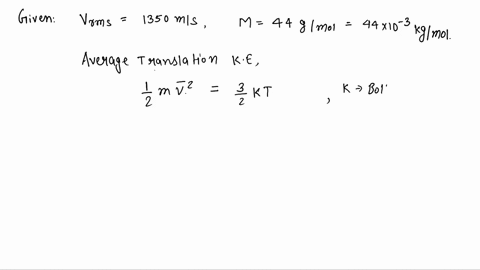 Given: Vrms = 1350 m/s, M = 44 g/mol = 44×10⁻³ kg/mol.
Average Translation K.E,
1/2 m v̄.² = 3/2 KT , K → Bol